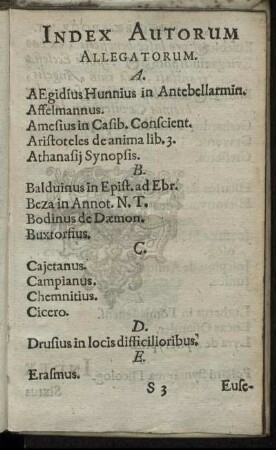 INDEX AUTORUM
ALLEGATORUM.
A.
AEgidius Hunnius in Antebellarmin.
Affelmannus.
Amesius in Casib. Conscient.
Aristoteles de anima lib. 3.
Athanasij Synopsis.
B.
Balduinus in Epist. ad Ebr.
Beza in Annot. N. T.
Bodinus de Dæmon.
Buxtorfius.
C.
Cajetanus.
Campianus.
Chemnitius.
Cicero.
D.
Drusius in locis difficilioribus.
E.
Erasmus.
S 3 Euse-